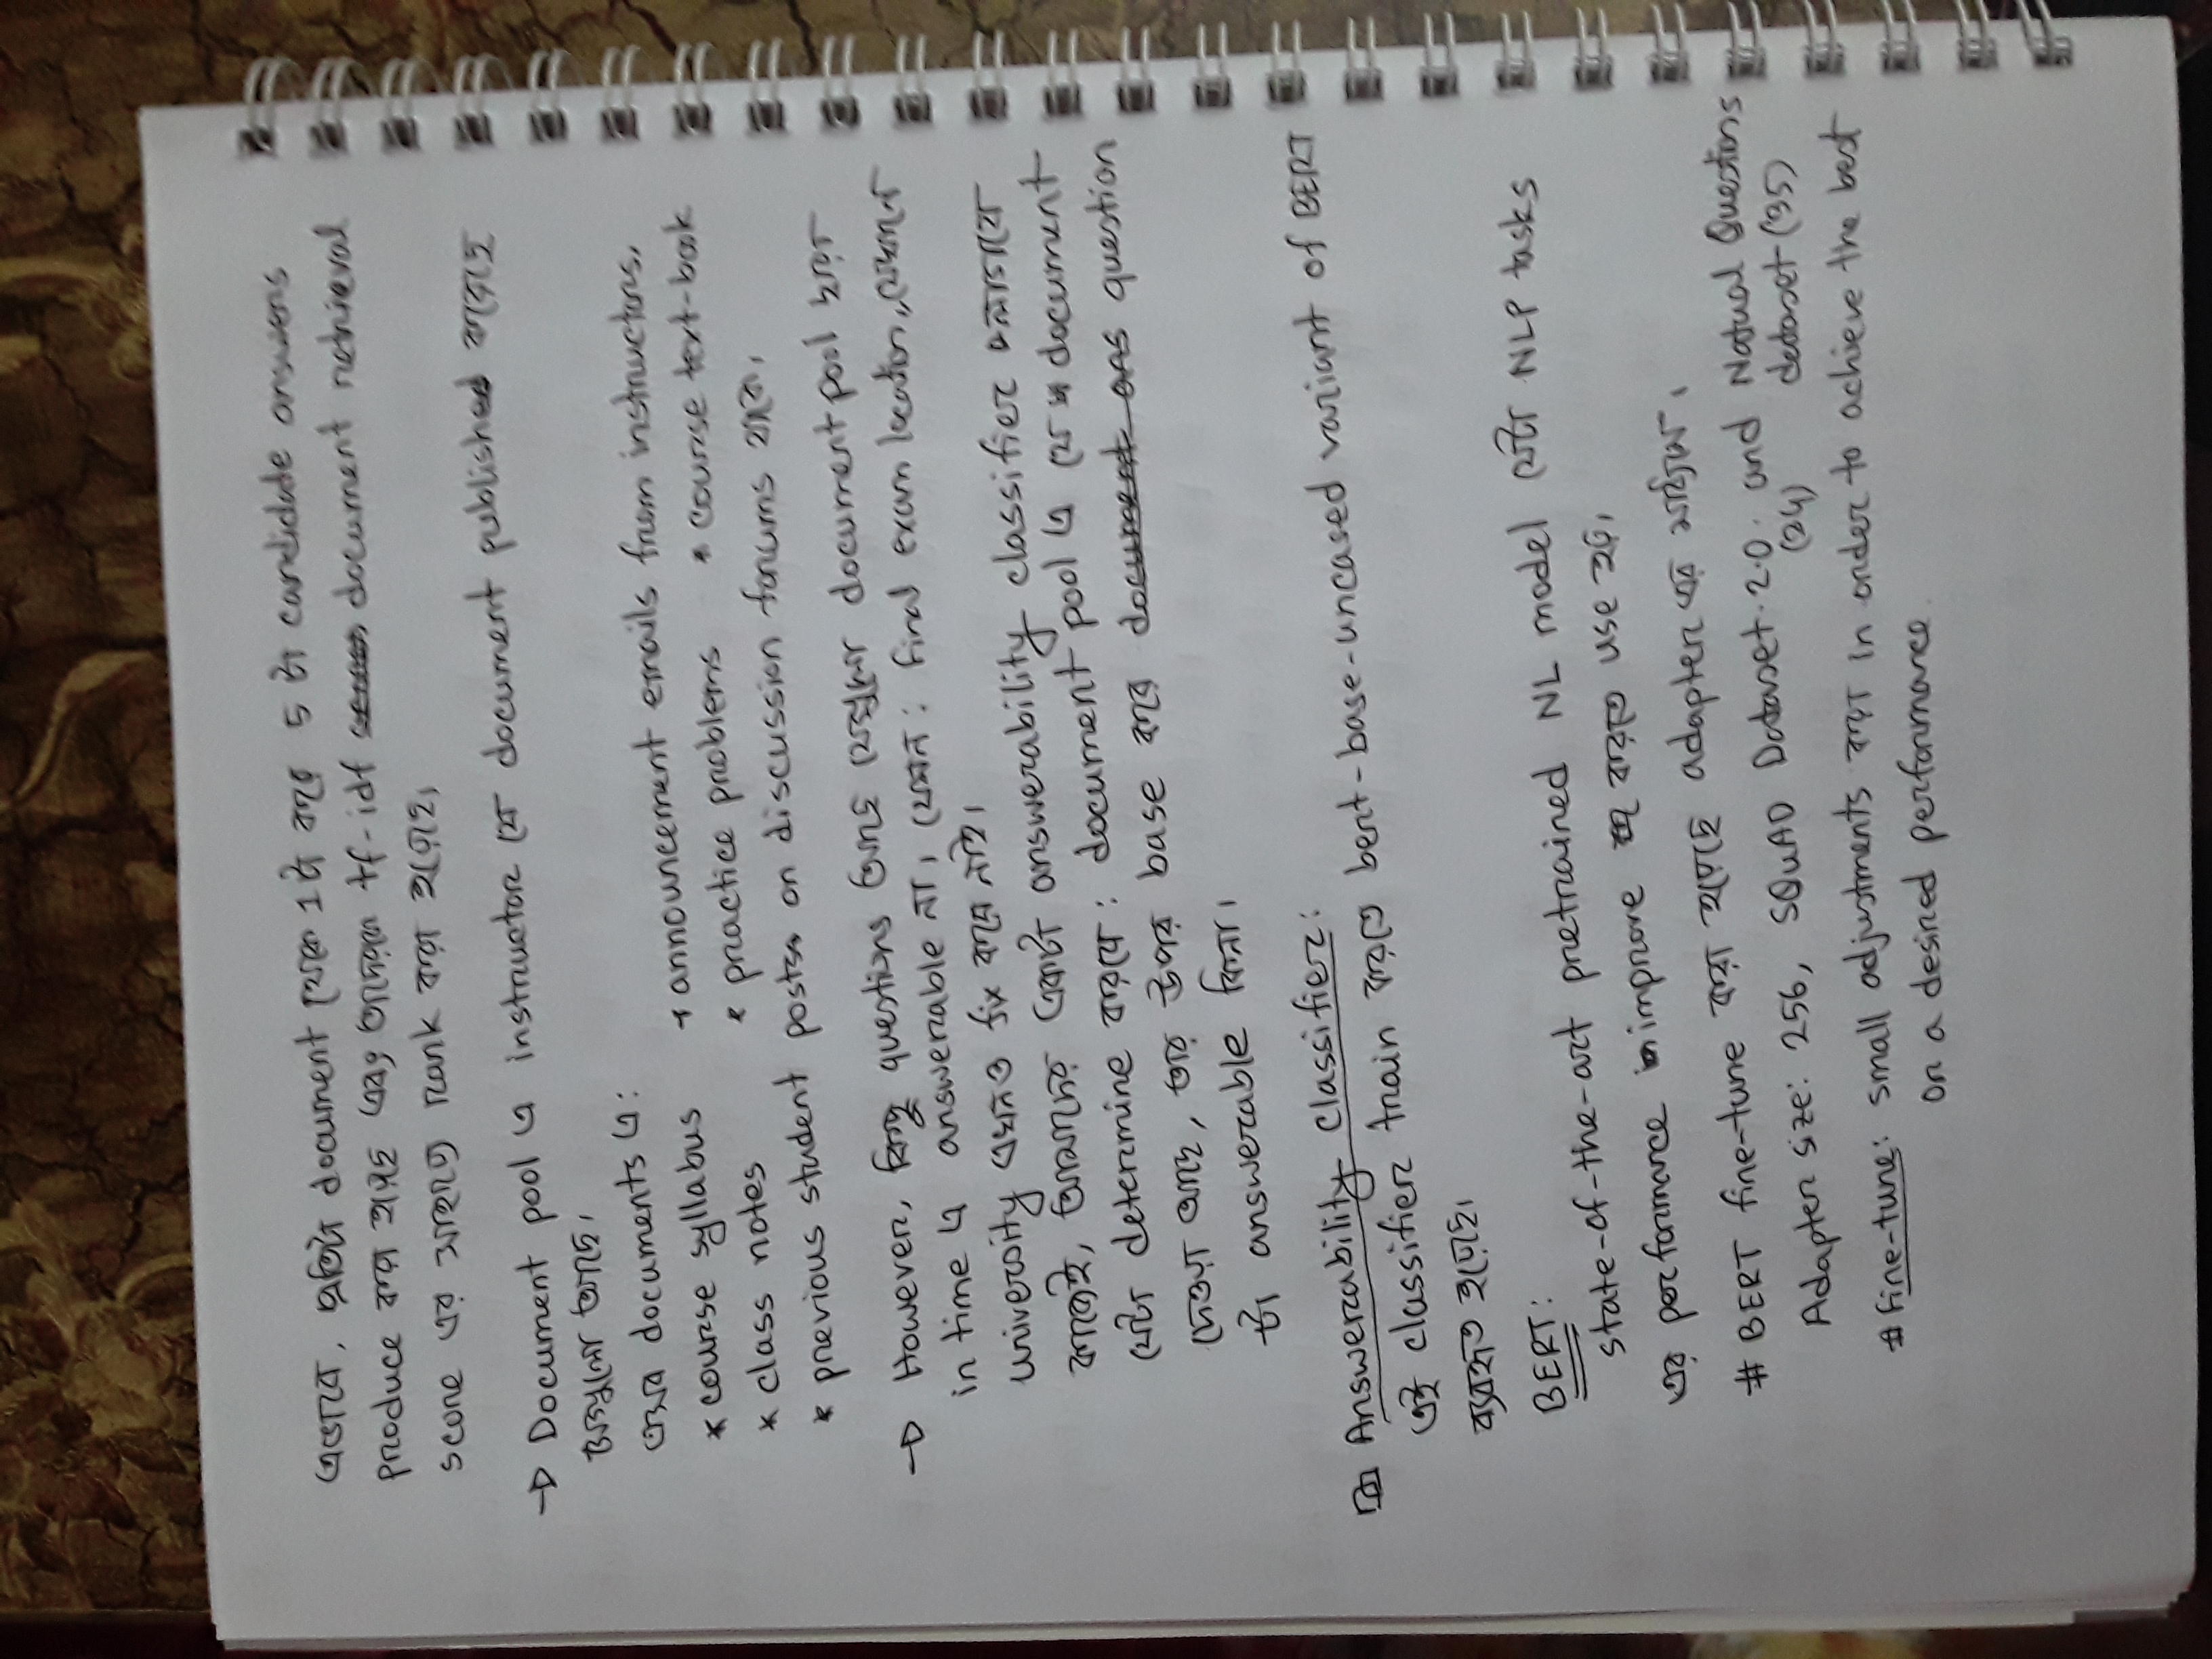 এভাবে, প্রতিটা document থেকে 1 টা করে 5 টা candidate answers
produce করা হয়েছে এবং তাদেরকে tf-idf document retrieval
score এর সাহায্যে rank করা হয়েছে।
→ Document pool এ instructor যে document published করেছে
সেগুলো আছে।
এসব documents এ:
* course syllabus * announcement emails from instructors,
* class notes * practice problems * course text-book
* previous student posts on discussion forums থাকে।
→ However, কিছু questions আছে যেগুলো document pool হতে
in time এ answerable না। যেমন: final exam location, যেখানে
university এখনও fix করে নাই।
কাজেই, আমাদের একটা answerability classifier
যেটা determine করবে: document pool এ যে document
দেওয়া আছে, তার উপর base করে document ans question
টা answerable কিনা।
Answerability Classifier:
এই classifier train করতে bert-base-uncased variant of BERT
ব্যবহৃত হয়েছে।
BERT:
state-of-the-art pretrained NL model যেটা NLP tasks
এর performance improve করতে use হয়।
# BERT fine-tune করা হয়েছে adapter এর মাধ্যমে।
Adapter size: 256, SQuAD Dataset 2.0 and Natual Questions
(24) dataset (35)
# fine-tune: small adjustments করা in order to achieve the best
or a desired performance